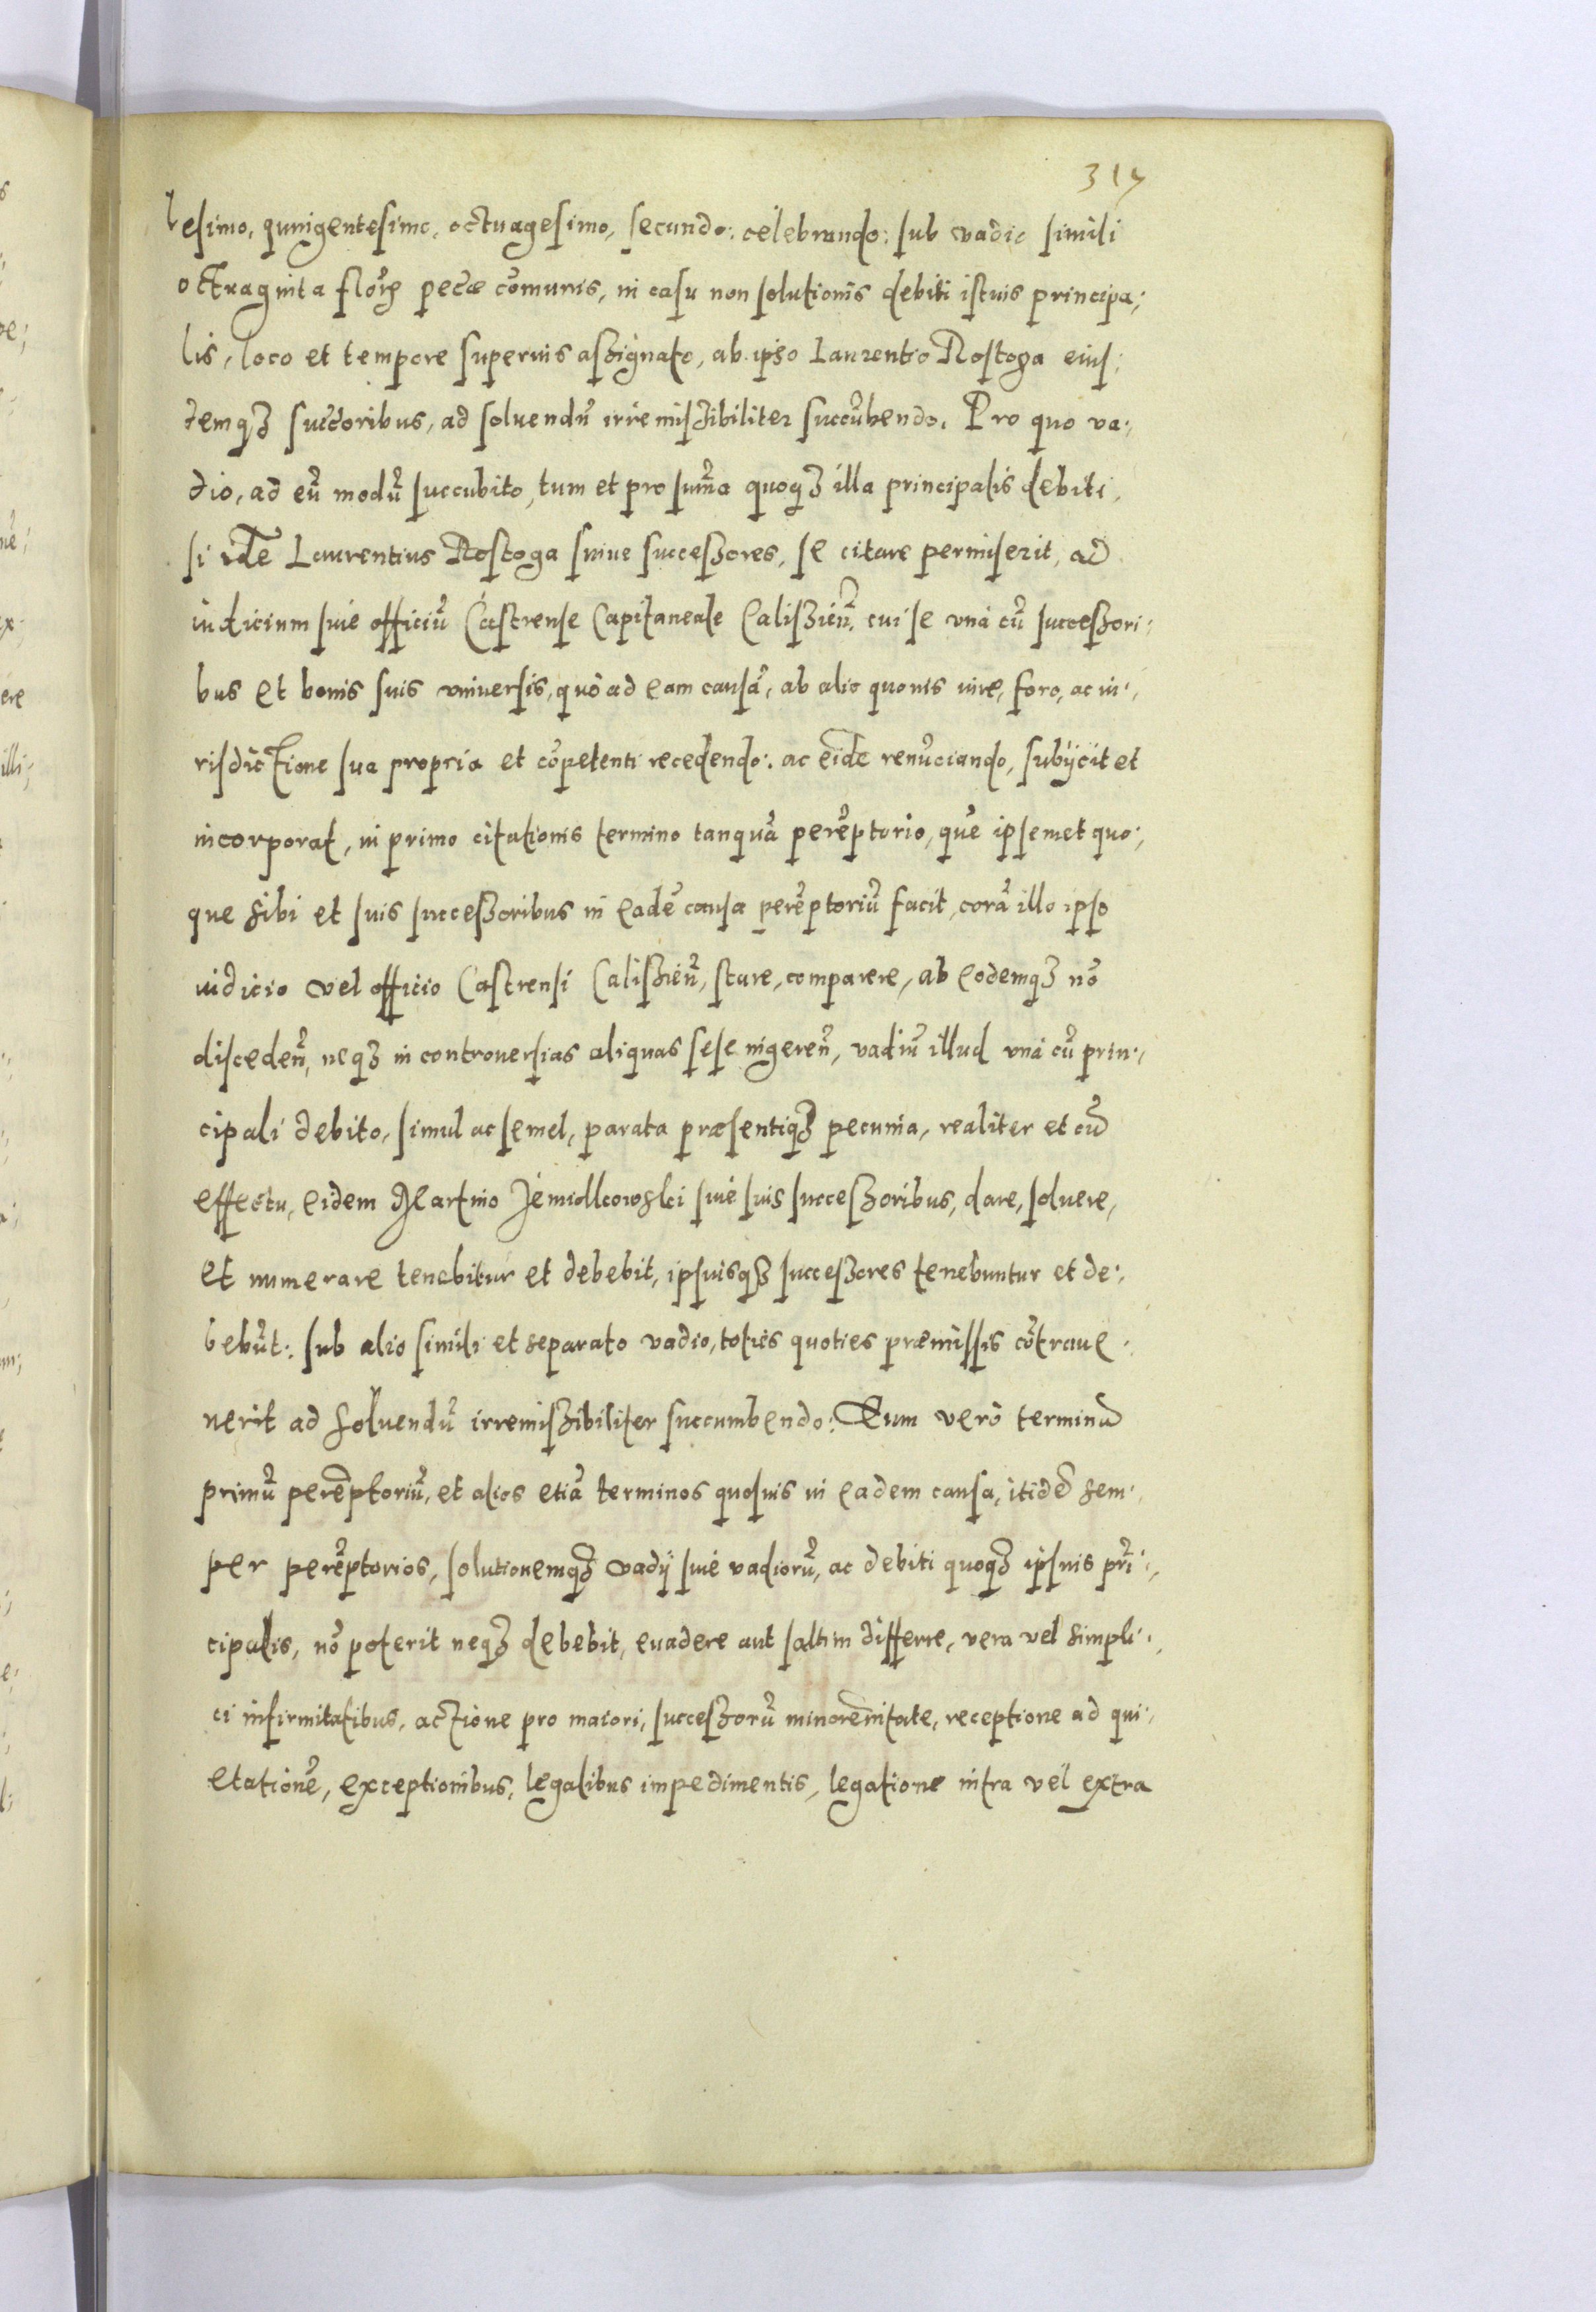 317
lesimo, quingentesimo, octuagesimo, secundo: celebrando: sub vadio simili
octuaginta floꝝ pecũe cõmunis, in casu non solutionis debiti istius principa:,
lis, loco et tempore superius aszignato, ab ipso Laurentio Rostoga eius:,
demqȝ succõribus, ad soluendũ irremiszibiliter succũbendo. Pro quo va:,
dio, ad eũ modũ succubito, tum et pro sum̃a quoqȝ illa principalis debiti,
si idẽ Laurentius Rostoga siue succeszores, se citare permiserit, ad
iudicium siue officiũ Castrense Capitaneale Caliszieñ. cui se vnà cũ succeszori:
bus et bonis suis vniuersis, quò ad eam causã, ab alio quouis iure, foro, ac iu:,
risdictione sua propria et cõpetenti recedendo: ac eidẽ renũciando, subijcit et
incorporat, in primo citationis termino tanquã perẽptorio, quẽ ipsemet quo:,
que sibi et suis succeszoribus in eadẽ causa perẽptoriũ facit, corã illo ipso
iudicio vel officio Castrensi Caliszieñ, stare, comparere, ab eodemqȝ nõ
discedeñ, neqȝ in controuersias aliquas sese ingereñ, vadiũ illud vnà cũ prin:,
cipali debito, simul ac semel, parata præsentiqȝ pecunia, realiter et cũ
effectu, eidem Martino Jemiolkowski siue suis succeszoribus, dare, soluere,
et numerare tenebitur et debebit, ipsiusqȝ succeszores tenebuntur et de:,
bebũt: sub alio simili et separato vadio, toties quoties præmissis cõtraue:,
nerit ad soluendũ irremiszibiliter succumbendo: Eum verò terminũ
primũ perẽptoriũ, et alios etiã terminos quosuis in eadem causa, itidẽ sem:,
per perẽptorios, solutionemqȝ vadij siue vadiorũ, ac debiti quoqȝ ipsius prĩ:,
cipalis, nõ poterit neqȝ debebit, euadere aut saltim differre, vera vel simpli:,
ci infirmitatibus, actione pro maiori, succeszorũ minorẽnitate, receptione ad qui:,
etationẽ, exceptionibus, legalibus impedimentis, legatione intra vel extra